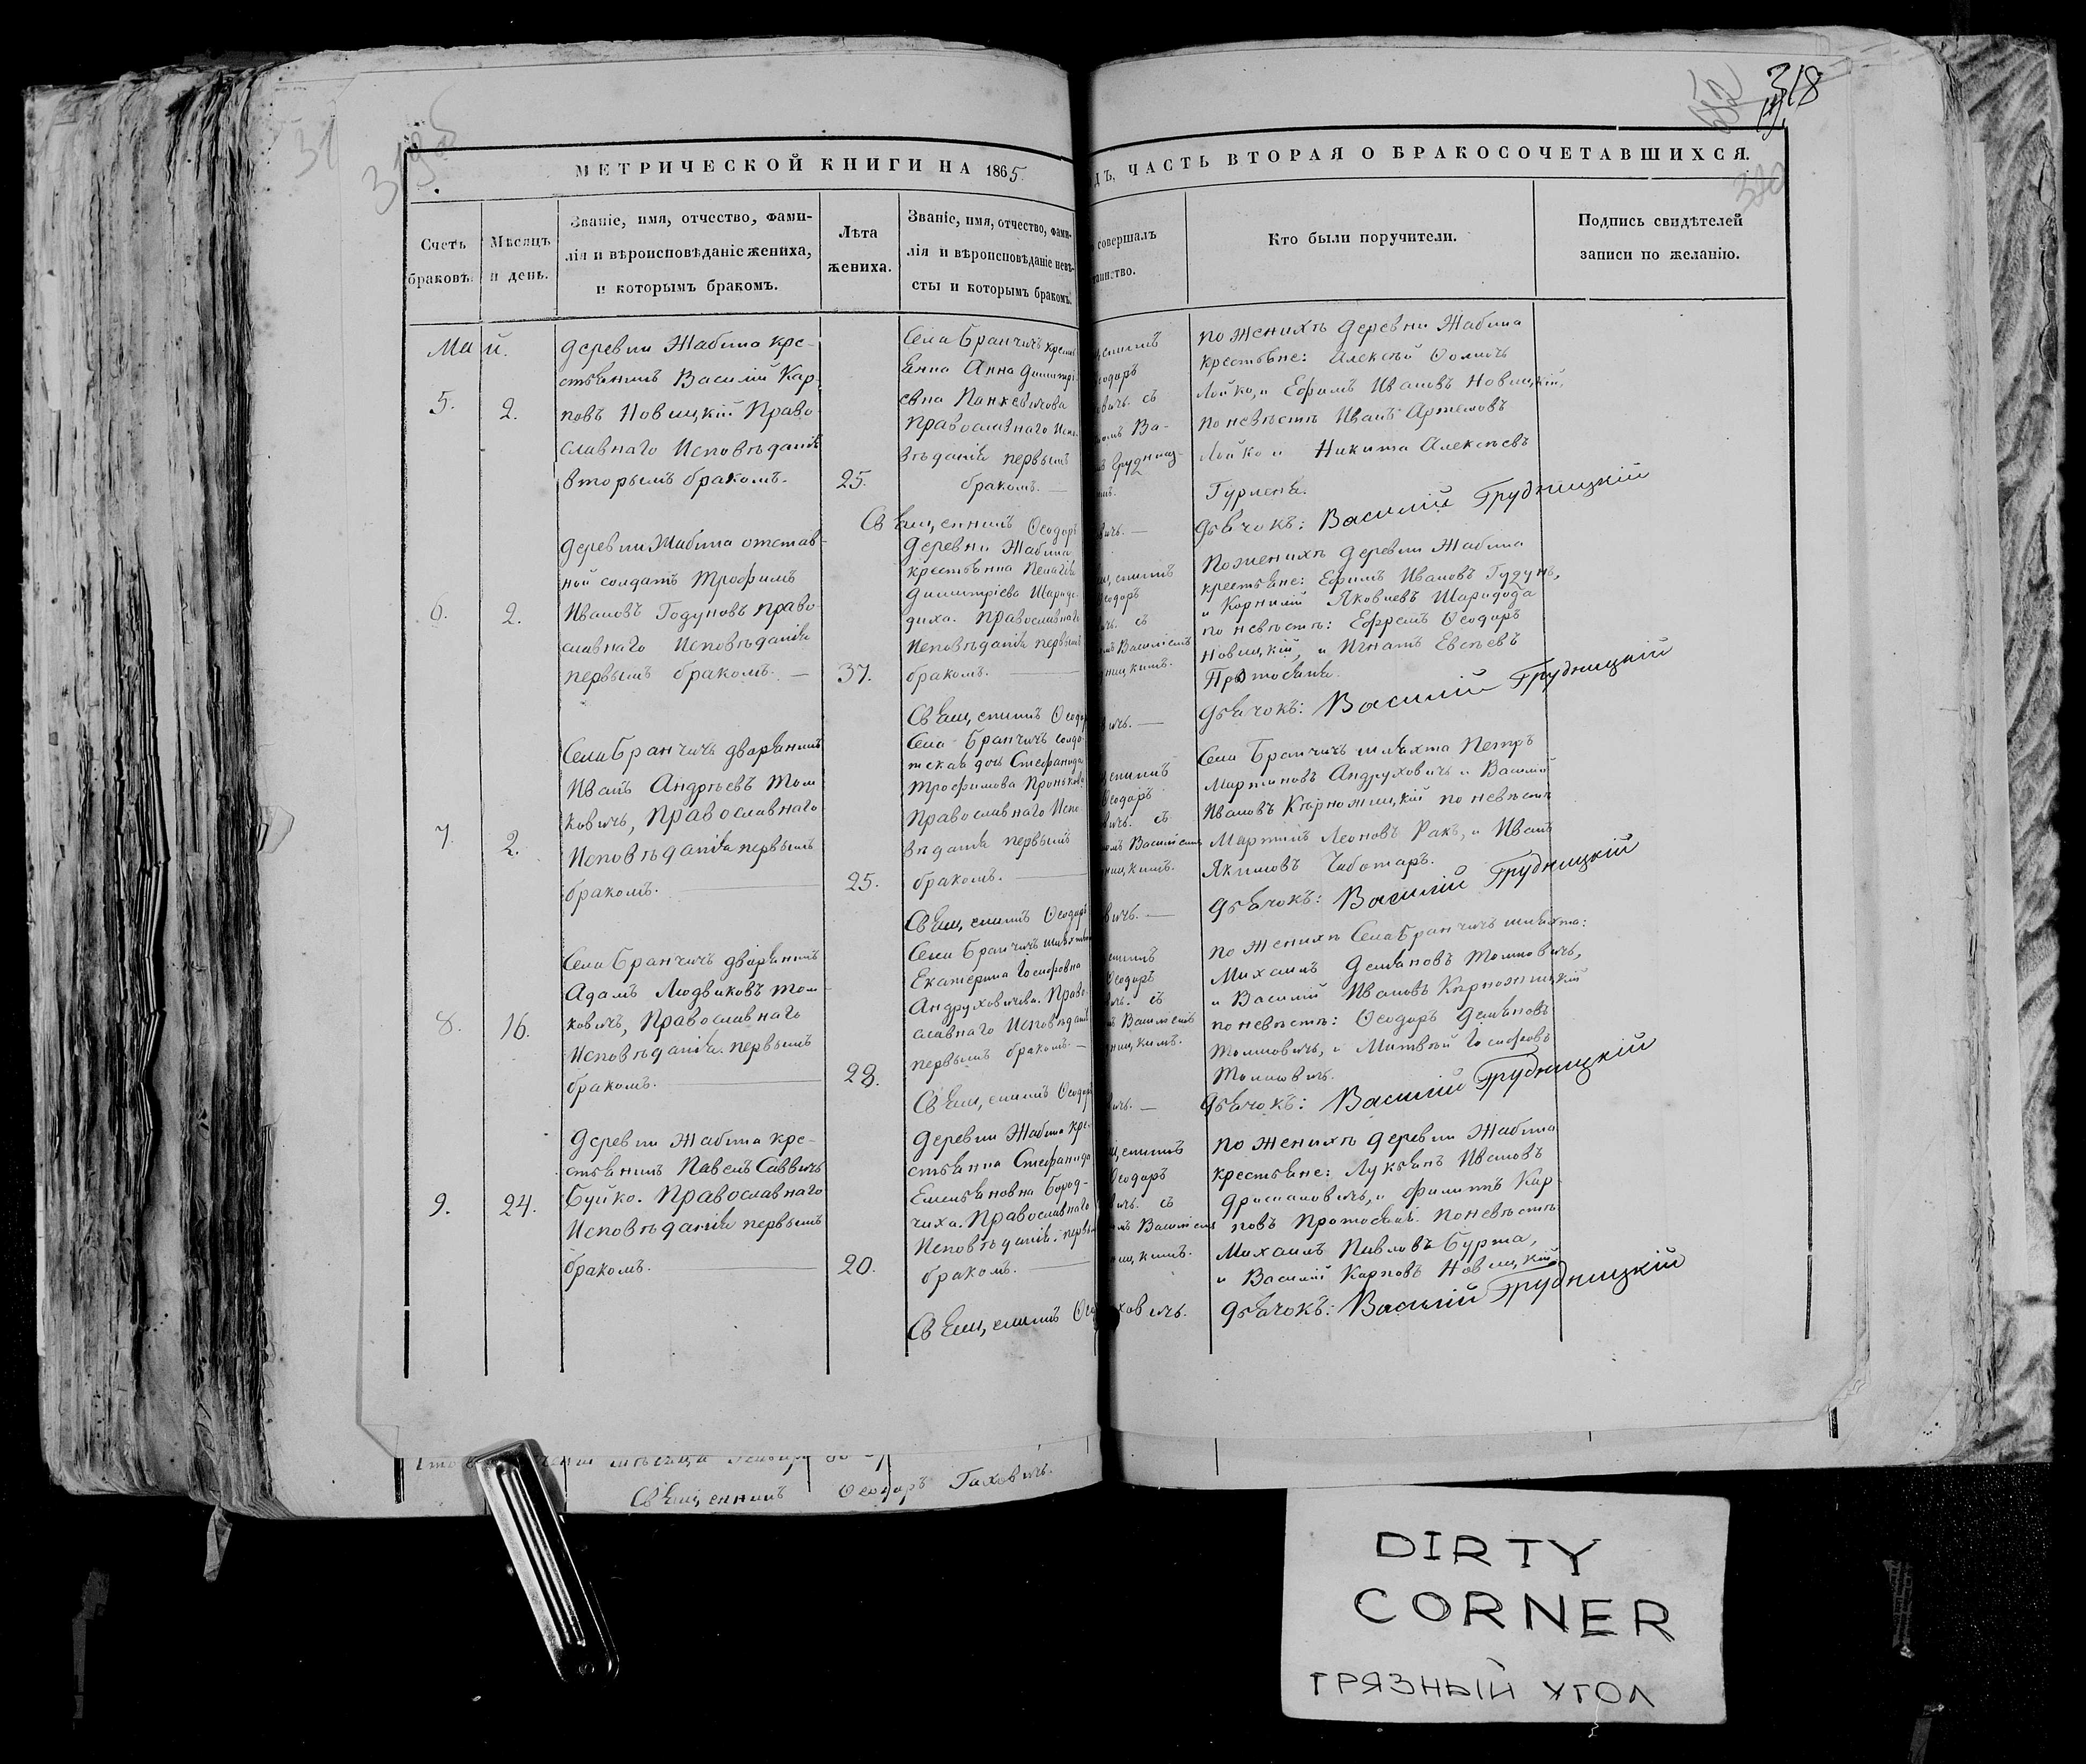 318
МЕТРИЧЕСКОЙ КНИГИ НА 1865
ДЪ, ЧАСТЬ ВТОРАЯ О БРАКОСОЧЕТАВШИХСЯ.
Счетъ браковъ.
Мѣсяцъ и день.
Званіе, имя, отчество, фами-
лія и вѣроисповѣданіе жениха,
и которымъ бракомъ.
Лѣта жениха.
Званіе, имя, отчество, фами-
лія и вѣроисповѣданіе невѣ-
сты и которымъ бракомъ.
совершалъ
таинство.
Кто были поручители.
Подпись свидѣтелей
записи по желанію.
Май.
5.
2.
Деревни Жабина кре-
стьянинъ Василій Кар
повъ Новицкій Право
славнаго Исповѣданія
вторымъ бракомъ.
25.
Села Бранчичъ крестья
янка Анна Димитрі
евна Панкевичова
Православнаго Испо
вѣданія первымъ
бракомъ.
По женихѣ деревни Жабина
крестьяне: Алексѣй Ѳомичъ
Лойко, и Ефимъ Ивановъ Новицкій,
По невѣстѣ Иванъ Артемовъ
Лойко и Никита Алексѣевъ
Гурленя.
Священникъ Ѳеодоръ
вичъ.
Дьячокъ: Василій Грудницкій
6.
2.
Деревни Жабина отстав-
ной солдатъ Трофимъ
Ивановъ Годуновъ Право
славнаго Исповѣданія
первымъ бракомъ.
37.
Деревни Жабина
крестьянка Пелагія
Димитріева Шариде
диха. Православнаго
Исповѣданія первымъ
бракомъ.
По женихѣ деревни Жабина
крестьяне: Ефимъ Ивановъ Гудунъ,
и Корнилій Яковлевъ Шаридода
по невѣстѣ: Ефремъ Ѳеодоръ
Новицкій, и Игнатъ Евсѣевъ
Протосеня.
Священникъ Ѳеодор
вичъ.
Дьячокъ: Василій Грудницкій
7.
2.
Села Бранчичъ дворянинъ
Иванъ Андрѣевъ Том
ковичъ, Православнаго
Исповѣданія первымъ
бракомъ.
25.
Села Бранчичъ солда-
тская дочь Стефанида
Трофимова Пронькова
Православнаго Испо
вѣданія первымъ
бракомъ.
Села Бранчичъ шляхта Петръ
Мартиновъ Андруховичъ и Василій
Ивановъ Кѣрножицкій по невѣстѣ
Мартинъ Леоновъ Ракъ, и Иванъ
Якимовъ Чеботаръ.
Священникъ Ѳеодоръ
вичъ.
Дьячокъ: Василій Грудницкій
8.
16.
Села Бранчичъ дворянинъ
Адамъ Людвиковъ Том-
ковичъ, Православнаго
Исповѣданія первымъ
бракомъ.
28.
Села Бранчичъ шляхтянка
Екатерина Іосифовна
Андруховичева. Право
славнаго Исповѣданія
первымъ бракомъ.
По женихѣ Села Бранчичъ шляхта:
Михаилъ Демьяновъ Томковичъ,
и Василій Ивановъ Кѣрножицкій
по невѣстѣ: Ѳеодоръ Демьяновъ
Томковичъ, и Матвѣй Іосифовъ
Томковичъ.
Священникъ Ѳеодоръ
вичъ.
Дьячокъ: Василій Грудницкій
9.
24.
Деревни Жабина кре-
стьянинъ Павелъ Саввичъ
Буйко. Православнаго
Исповѣданія первымъ
бракомъ.
20.
Деревни Жабина кре-
стьянка Стефанида
Емельяновна Бород-
чиха. Православнаго
Исповѣданія. первы
бракомъ.
По женихѣ деревни Жабина
крестьяне: Лукьянъ Ивановъ
Дромановичъ, и Филиппъ Кар-
повъ Протосеня. По невѣстѣ
Михаилъ Павловъ Бурта,
и Василій Карповъ Новицкій
Священникъ Ѳео
ховичъ.
Дьячокъ: Василій Грудницкій
Священникъ Ѳеодоръ Гаховичъ.
DIRTY
CORNER
ГРЯЗНЫЙ УГОЛ